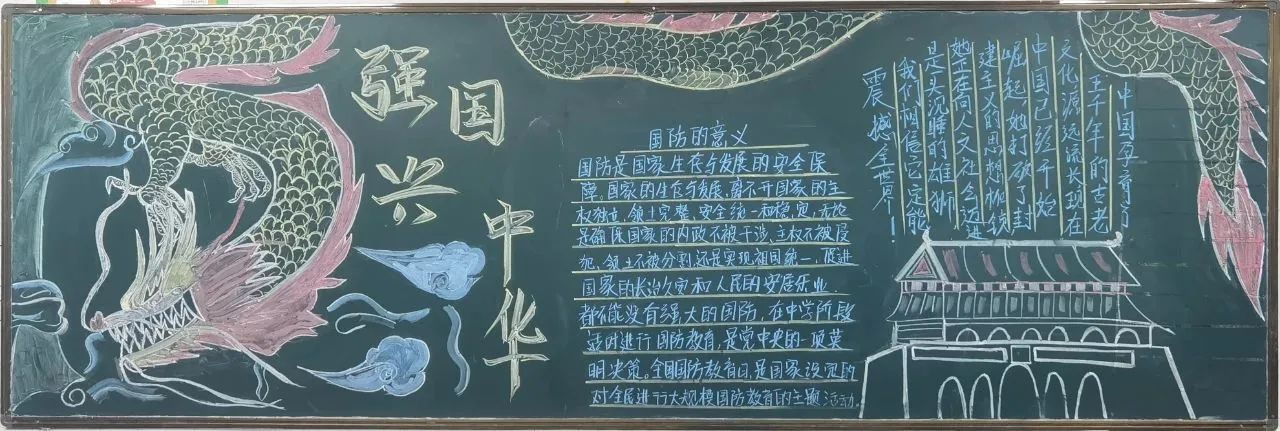 强国兴中华
国防的意义
国防是国家生存与发展的安全保
障,国家的生存与发展,离不开国家的主
权独立、领土完整、安全统一和稳定,无论
是确保国家的内政不被干涉、主权不被侵
犯、领土不被分割,还是实现祖国统一、促进
国家的长治久安和人民的安居乐业.
都不能没有强大的国防,在中学阶段
适时进行国防教育,是党中央的一项英
明决策。全国国防教育日,是国家设定的
对全民进行大规模国防教育的主题活动.
中国孕育了
五千年的古老
文化源远流长现在
中国已经开始
崛起她打破了封
建主义的思想枷锁
她正在向人文社会迈进
是一头沉睡的雄狮
我们相信它定能
震撼全世界!